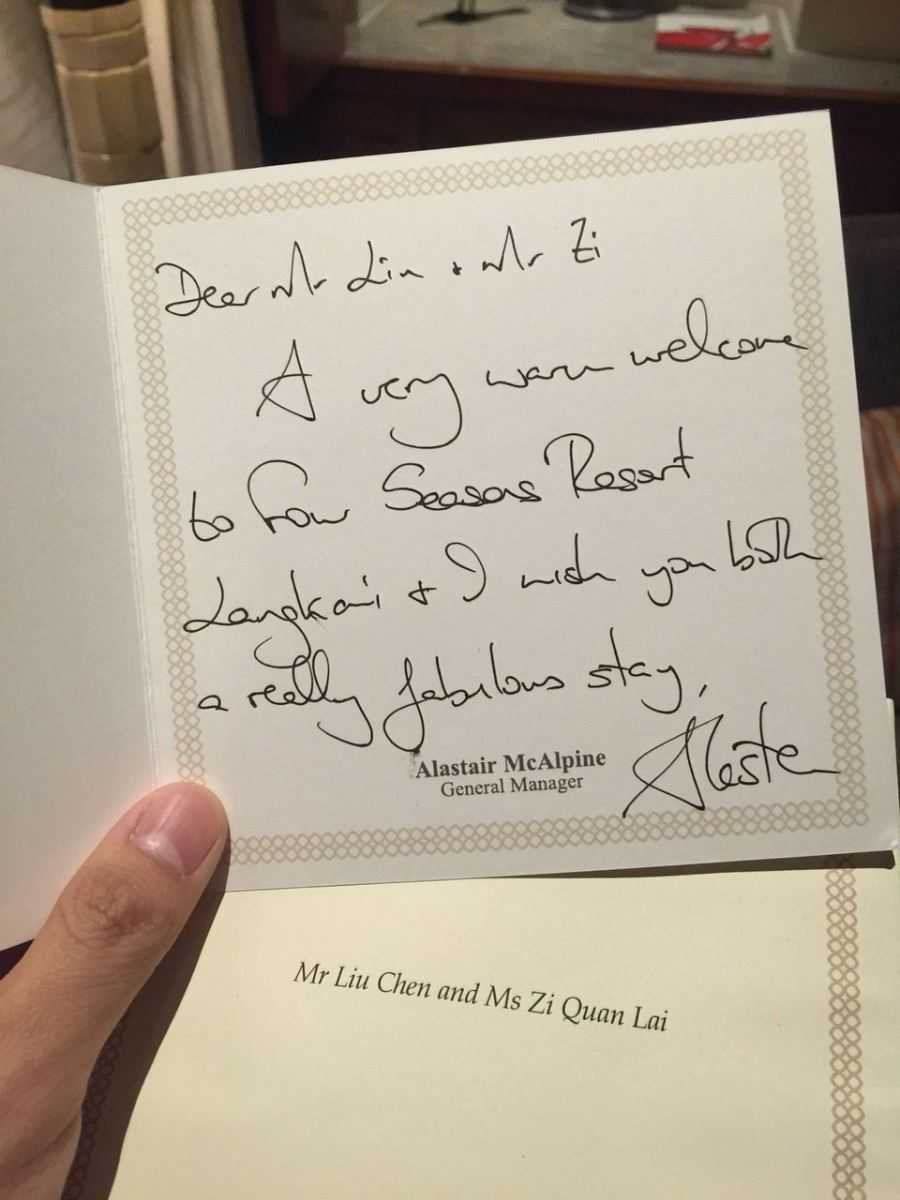 Dear Mr Liu + Mr Zi
A very warm welcome
to Four Seasons Resort
Langkawi + I wish you both
a really fabulous stay,
Alastair McAlpine
General Manager
Mr Liu Chen and Ms Zi Quan Lai